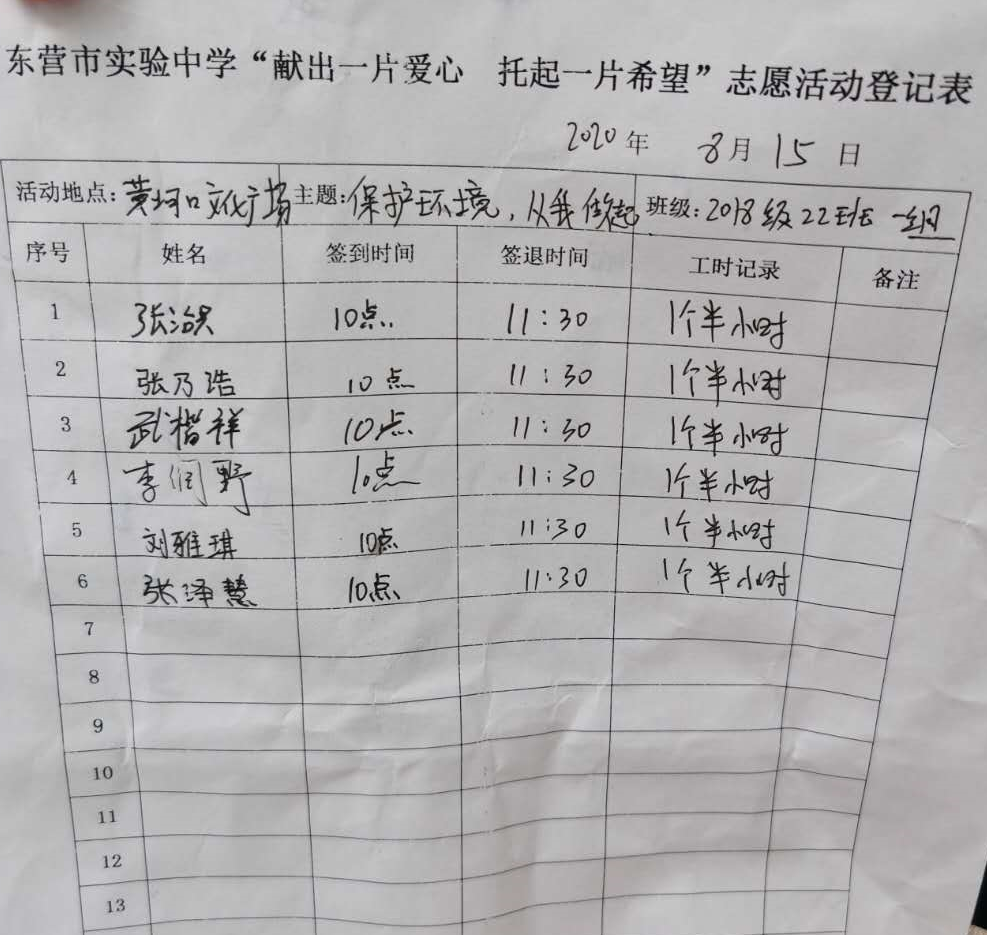 东营市实验中学“献出一片爱心 托起一片希望”志愿活动登记表
2020年 8月15日
活动地点:黄河口文化广场 主题:保护环境,从我做起 班级:2018级22班 一组
序号 姓名 签到时间 签退时间 工时记录 备注
1 张治昊 10点 11:30 1个半小时
2 张乃浩 10点 11:30 1个半小时
3 武楷祥 10点 11:30 1个半小时
4 李润野 10点 11:30 1个半小时
5 刘雅琪 10点 11:30 1个半小时
6 张泽慧 10点 11:30 1个半小时
7
8
9
10
11
12
13